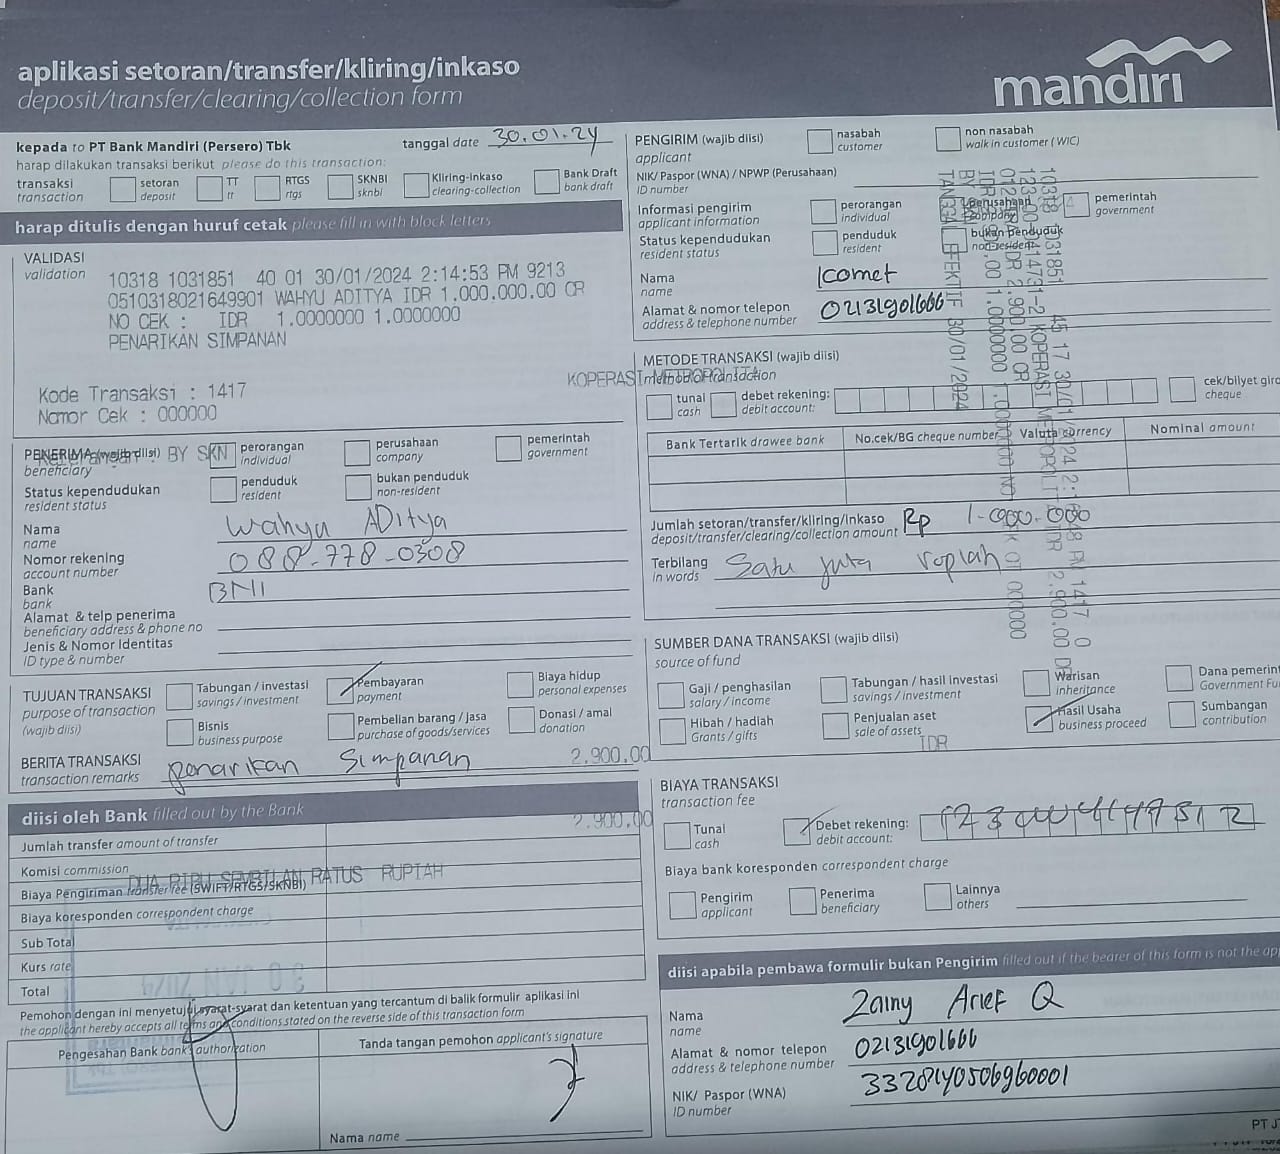 aplikasi setoran/transfer/kliring/inkaso
deposit/transfer/clearing/collection form
mandiri
kepada to PT Bank Mandiri (Persero) Tbk
tanggal date 30.01.24
harap dilakukan transaksi berikut please do this transaction:
transaksi
transaction
setoran
deposit
TT
tt
RTGS
rtgs
SKNBI
sknbi
Kliring-inkaso
clearing-collection
Bank Draft
bank draft
harap ditulis dengan huruf cetak please fill in with block letters
VALIDASI
validation
10318 1031851 40 01 30/01/2024 2:14:53 PM 9213
0510318021649901 WAHYU ADITYA IDR 1.000.000.00 CR
NO CEK : IDR 1.0000000 1.0000000
PENARIKAN SIMPANAN
Kode Transaksi : 1417
Nomor Cek : 000000
KOPERASI METROPOLITA
PENERIMA (wajib diisi)
beneficiary
BY SKN
perorangan
individual
perusahaan
company
pemerintah
government
Status kependudukan
resident status
penduduk
resident
bukan penduduk
non-resident
Nama
name
Wahyu ADitya
Nomor rekening
account number
088-778-0308
Bank
bank
BNI
Alamat & telp penerima
beneficiary address & phone no
Jenis & Nomor Identitas
ID type & number
TUJUAN TRANSAKSI
purpose of transaction
(wajib diisi)
Tabungan / investasi
savings / investment
Pembayaran
payment
Biaya hidup
personal expenses
Bisnis
business purpose
Pembelian barang / jasa
purchase of goods/services
Donasi / amal
donation
BERITA TRANSAKSI
transaction remarks
penarikan Simpanan
2.900.00
diisi oleh Bank filled out by the Bank
2.900.00
Jumlah transfer amount of transfer
Komisi commission
DUA RIBU SEMBILAN RATUS RUPIAH
Biaya Pengiriman transfer fee (SWIFT/RTGS/SKNBI)
Biaya koresponden correspondent charge
Sub Total
Kurs rate
Total
Pemohon dengan ini menyetujui syarat-syarat dan ketentuan yang tercantum di balik formulir aplikasi ini
the applicant hereby accepts all terms and conditions stated on the reverse side of this transaction form
Pengesahan Bank bank's authorization
Tanda tangan pemohon applicant's signature
Nama name
PENGIRIM (wajib diisi)
applicant
nasabah
customer
non nasabah
walk in customer (WIC)
NIK/ Paspor (WNA) / NPWP (Perusahaan)
ID number
Informasi pengirim
applicant information
perorangan
individual
perusahaan
company
pemerintah
government
Status kependudukan
resident status
penduduk
resident
bukan penduduk
non-resident
Nama
name
Komet
Alamat & nomor telepon
address & telephone number
02131901666
METODE TRANSAKSI (wajib diisi)
method of transaction
tunai
cash
debet rekening:
debit account:
cek/bilyet giro
cheque
Bank Tertarik drawee bank
No.cek/BG cheque number
Valuta currency
Nominal amount
Jumlah setoran/transfer/kliring/inkaso
deposit/transfer/clearing/collection amount
Rp 1-000.000
Terbilang
in words
Satu juta ropiah
SUMBER DANA TRANSAKSI (wajib diisi)
source of fund
Gaji / penghasilan
salary / income
Tabungan / hasil investasi
savings / investment
Warisan
inheritance
Dana pemerint
Government Fu
Hibah / hadiah
Grants / gifts
Penjualan aset
sale of assets
Hasil Usaha
business proceed
Sumbangan
contribution
IDR
BIAYA TRANSAKSI
transaction fee
Tunai
cash
Debet rekening:
debit account:
Biaya bank koresponden correspondent charge
Pengirim
applicant
Penerima
beneficiary
Lainnya
others
diisi apabila pembawa formulir bukan Pengirim filled out if the bearer of this form is not the app
Nama
name
Zainy Arief Q
Alamat & nomor telepon
address & telephone number
02131901666
NIK/ Paspor (WNA)
ID number
3328140506960001